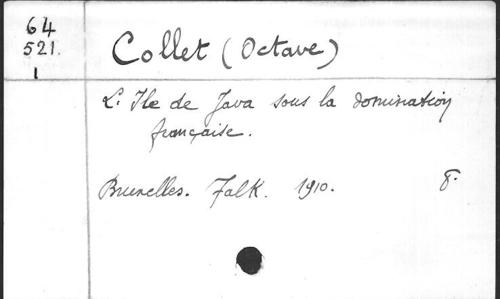 64
521.
1
Collet (Octave)
L'Ile de Java sous la domination
française.
Bruxelles. Falk. 1910. 8.